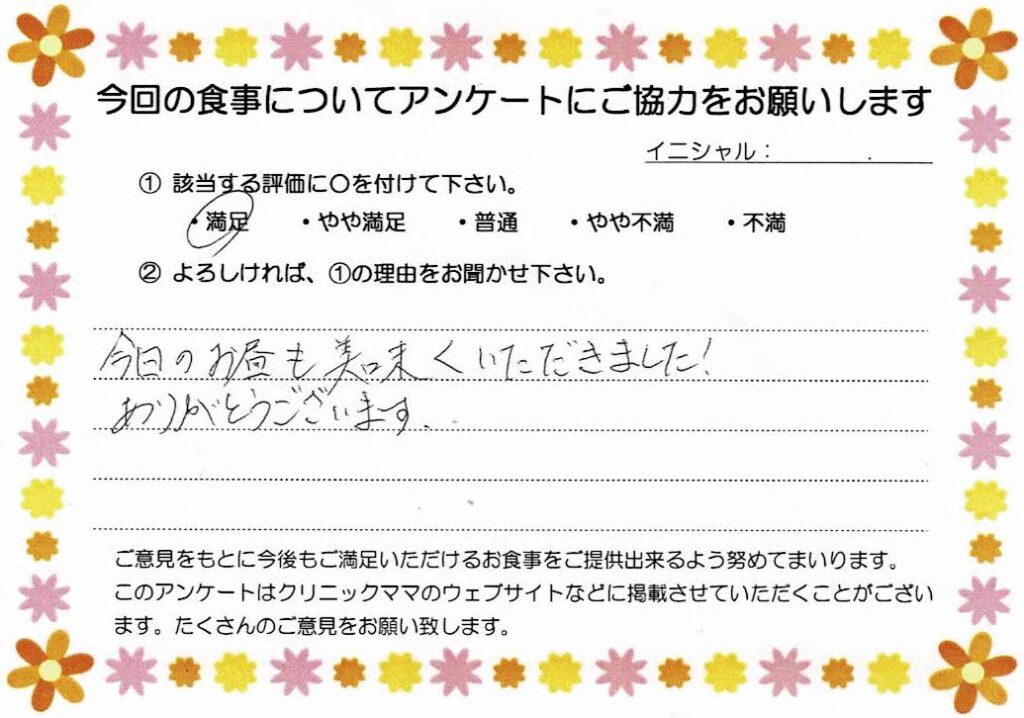 今回の食事についてアンケートにご協力をお願いします
イニシャル：　　　　．
① 該当する評価に〇を付けて下さい。
・満足　・やや満足　・普通　・やや不満　・不満
② よろしければ、①の理由をお聞かせ下さい。
今日のお昼も美味くいただきました！
ありがとうございます．
ご意見をもとに今後もご満足いただけるお食事をご提供出来るよう努めてまいります。
このアンケートはクリニックママのウェブサイトなどに掲載させていただくことがござい
ます。たくさんのご意見をお願い致します。